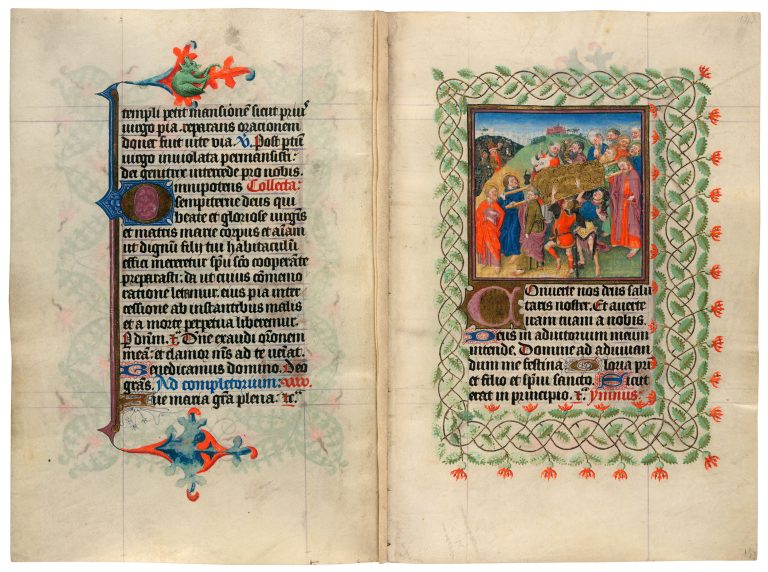 templi petit mansionē sicut
uirgo pia reparans orationem
uite uia. V. Post ptū
uirgo inuiolata permansisti:
dei genitrix intercede pro nobis.
Omnipotens Collecta:
sempiterne deus qui
beate et gloriose uirgīs
et matris marie corpus et aīam
ut dignū filij tui habitaculū
effici mereretur spū scō cooperāte
preparasti: da ut cuius cōmemo
ratione letamur. eius pia inter
cessione ab instantibus malis
et a morte perpetua liberemur.
P dnūm. Dne exaudi orōnem
meā: et clamor ad te ueniat.
Benedicamus domino. Deo
grās. Ad completorium:
Aue maria grā plena:
Conuerte nos deus salu
taris noster. Et auerte
iram tuam a nobis.
Deus in adiutorium meum
intende. Domine ad adiuuan
dum me festina. Gloria pri
et filio et spiui sancto. Sicut
erat in principio. Ymnus: